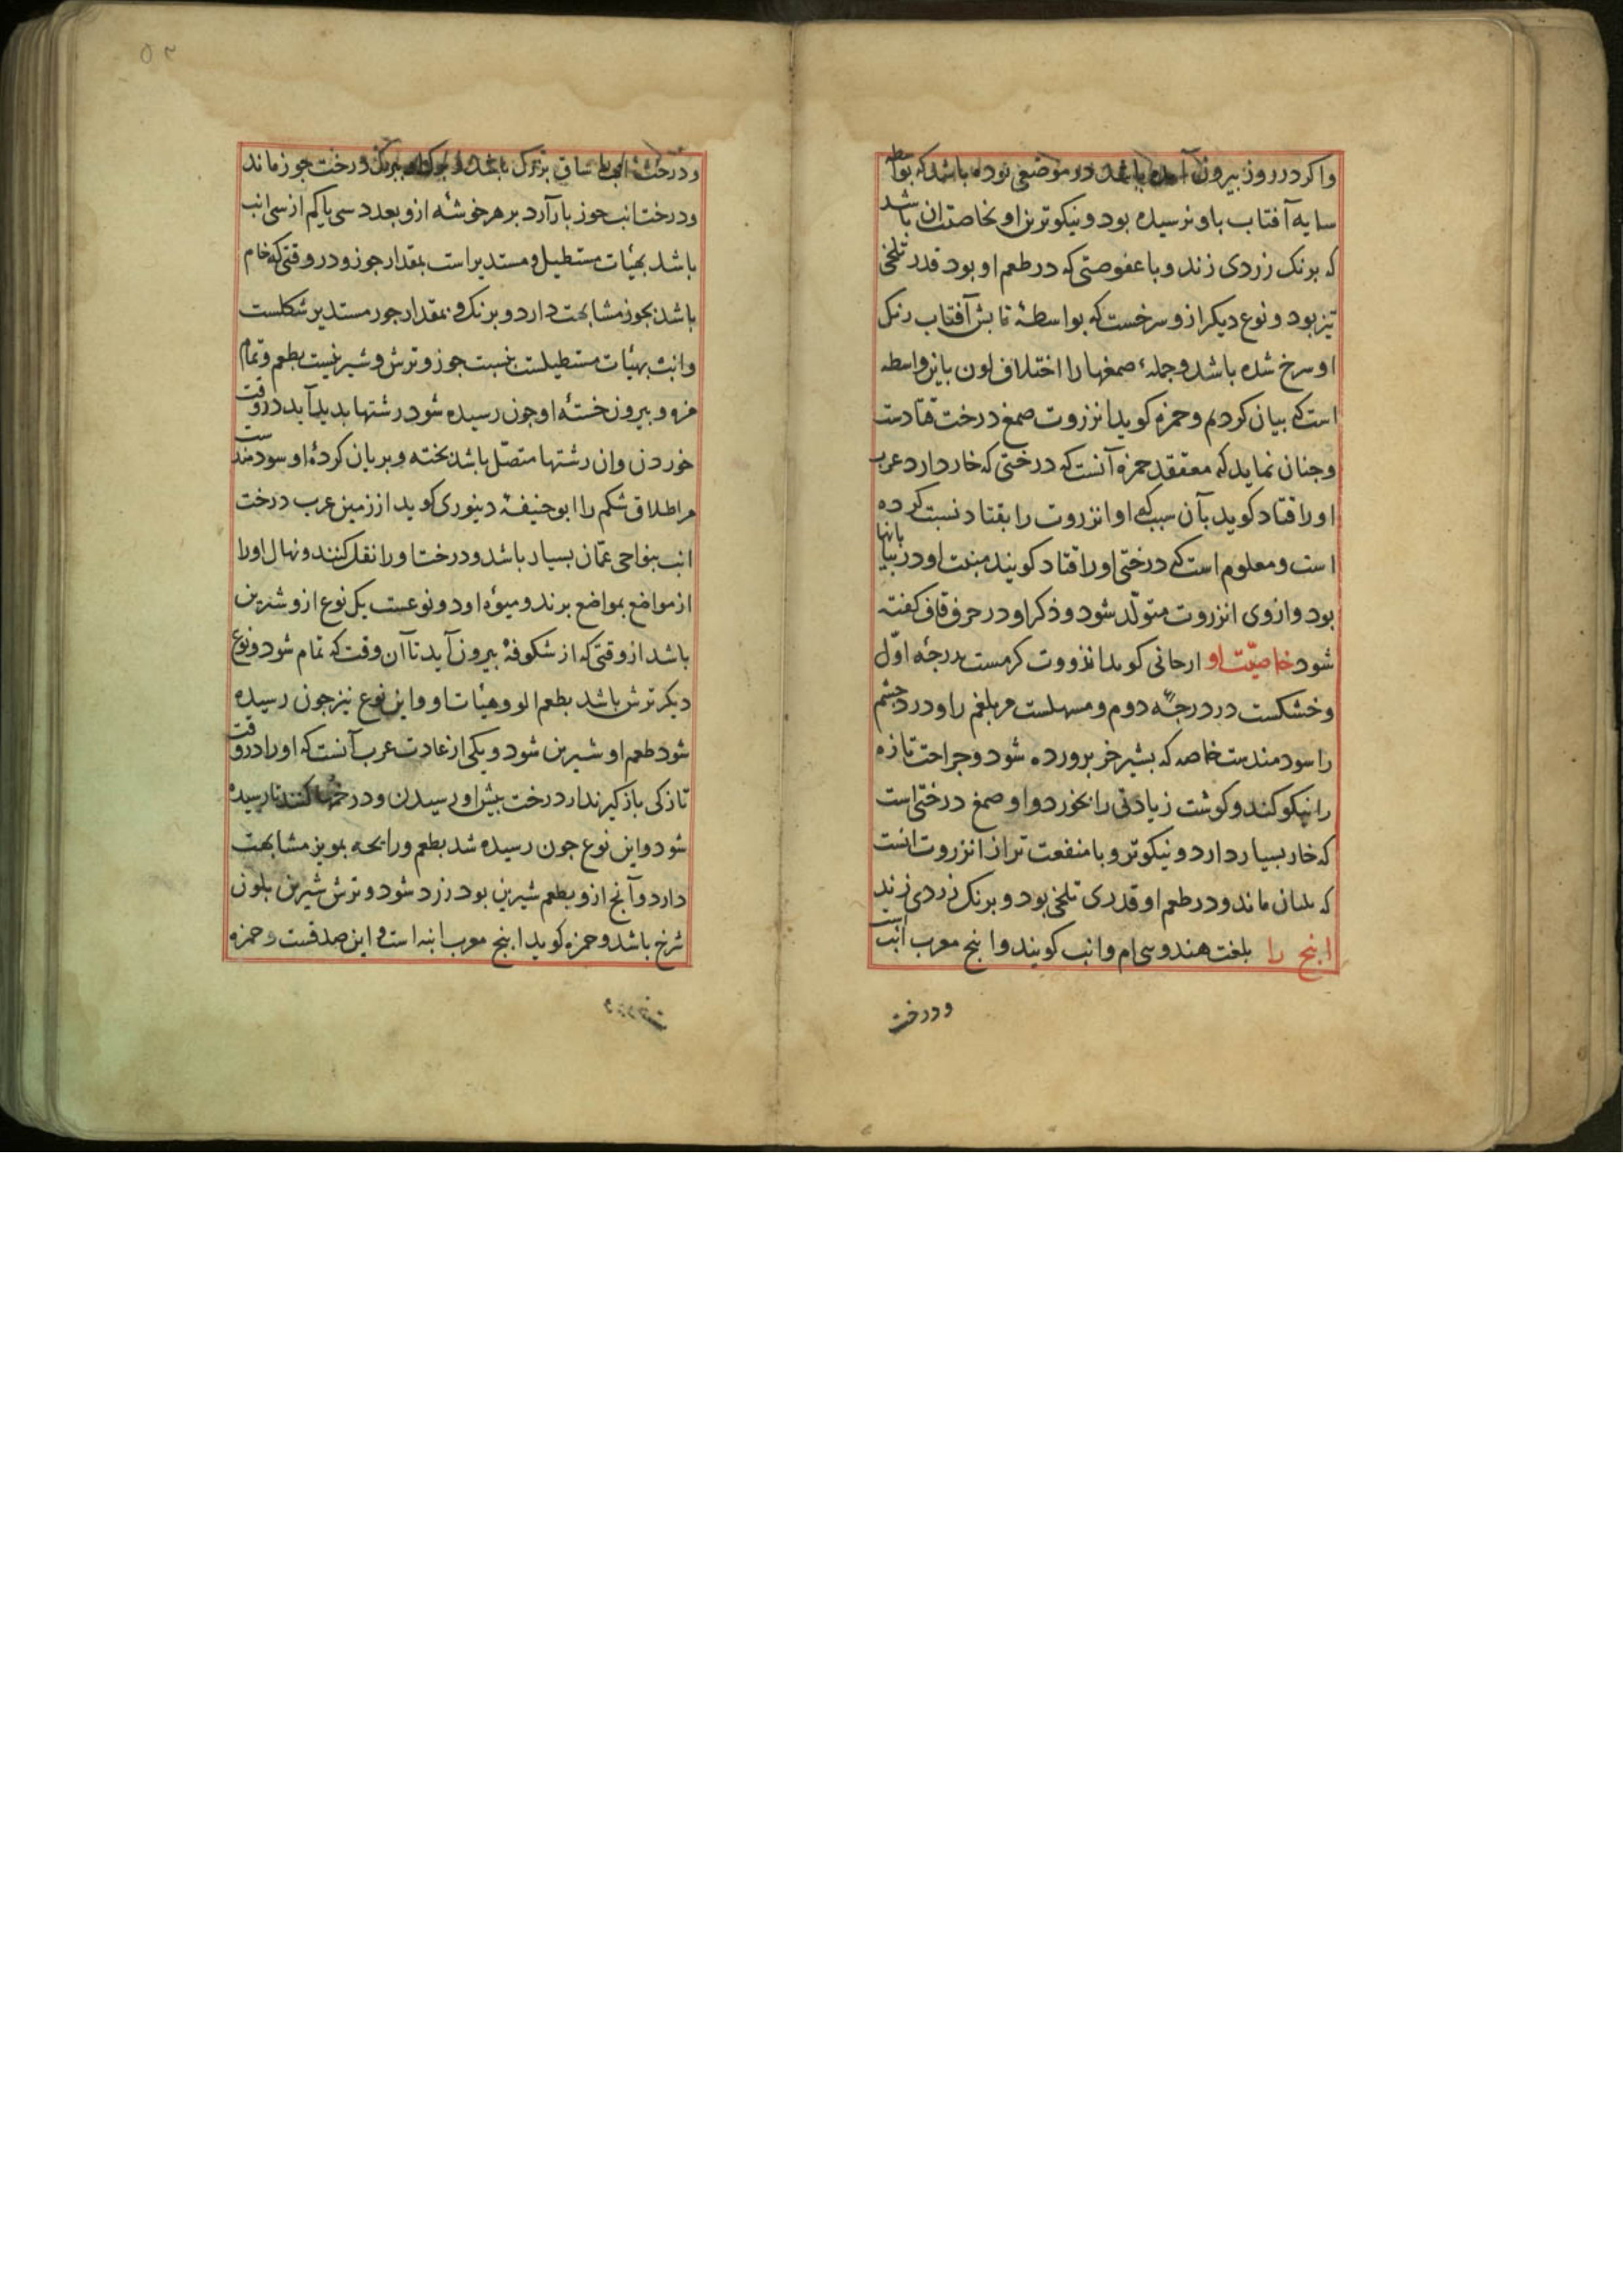 واکر در روز بیرون آمده باشد و در موضعی بوده باشد که بواسطه
سایه آفتاب باو نرسیده بود و نیکوترین او بخاصیت ان باشد
که برنک زردی زند و با عفوصتی که در طعم او بود قدر تلخی
تیز بود و نوع دیکر ازو سرخست که بواسطهٔ تابش آفتاب رنک
او سرخ شده باشد و جملهٔ صمغها را اختلاف لون باین واسطه
است که بیان کردیم و حمزه کوید انزروت صمغ درخت قتادست
و جنان نماید که معتقد حمزه آنست که درختی که خار دارد عرب
اورا قتاد کوید بآن سبب که او انزروت را بقتاد نسبت کرده
است و معلوم است که درختی اورا قتاد کویند منبت او در بیابانها
بود و ازوی انزروت متولّد شود و ذکر او در حرف قاف کفته
شود خاصیّت او ارجانی کوید انزروت کرمست بدرجهٔ اوّل
و خشکست در درجهٔ دوم و مسهلست مر بلغم را و درد چشم
را سودمندست خاصه که بشیر خر پرورده شود و جراحت تازه
را نیکو کند و کوشت زیادتی را بخورد و او صمغ درختی است
که خار بسیار دارد و نیکوتر و با منفعت تر از انزروت انست
که بلبان ماند و در طعم او قدری تلخی بود و برنک زردی زند
انبج را بلغت هندوی ام و انب کویند و انبج معرب انبست
و درخت
و درخت انب با ساق بزرک باشد و برک او ببرک درخت جوز ماند
و درخت انب جوز بار آرد بر هر خوشهٔ ازو بعدد سی یا کم از سی انب
باشد بهیٔات مستطیل و مستدیر است بمقدار جوز و در وقتی که خام
باشد بجوز مشابهت دارد و برنک و بمقدار جوز مستدیر شکلست
و انب بهیٔات مستطیلست بنسبت جوز و ترش و شیرینست بطعم و تمام
مزه و بیرون خستهٔ او جون رسیده شود رشتها بدید آید در وقت
خوردن وان رشتها متصّل باشد بخته و بریان کردهٔ او سودمندست
مر اطلاق شکم را ابو حنیفهٔ دینوری کوید از زمین عرب درخت
انب بنواحی عمّان بسیار باشد و درخت اورا نقل کنند و نهال اورا
از مواضع بمواضع برند و میوهٔ او دو نوعست یک نوع ازو شیرین
باشد از وقتی که از شکوفهٔ بیرون آید تا آن وقت که تمام شود و نوع
دیکر ترش باشد بطعم الو و هیٔات او و این نوع نیز جون رسیده
شود طعم او شیرین شود و یکی از عادت عرب آنست که اورا در وقت
تازکی باز کیرند از درخت پیش از رسیدن و در خمها کنند تا رسیده
شود و این نوع جون رسیده شد بطعم و رایحه بمویز مشابهت
دارد و آنج ازو بطعم شیرین بود زرد شود و ترش شیرین بلون
سرخ باشد و حمزه کوید انبج معرب انبه است و این صدقست و حمزه